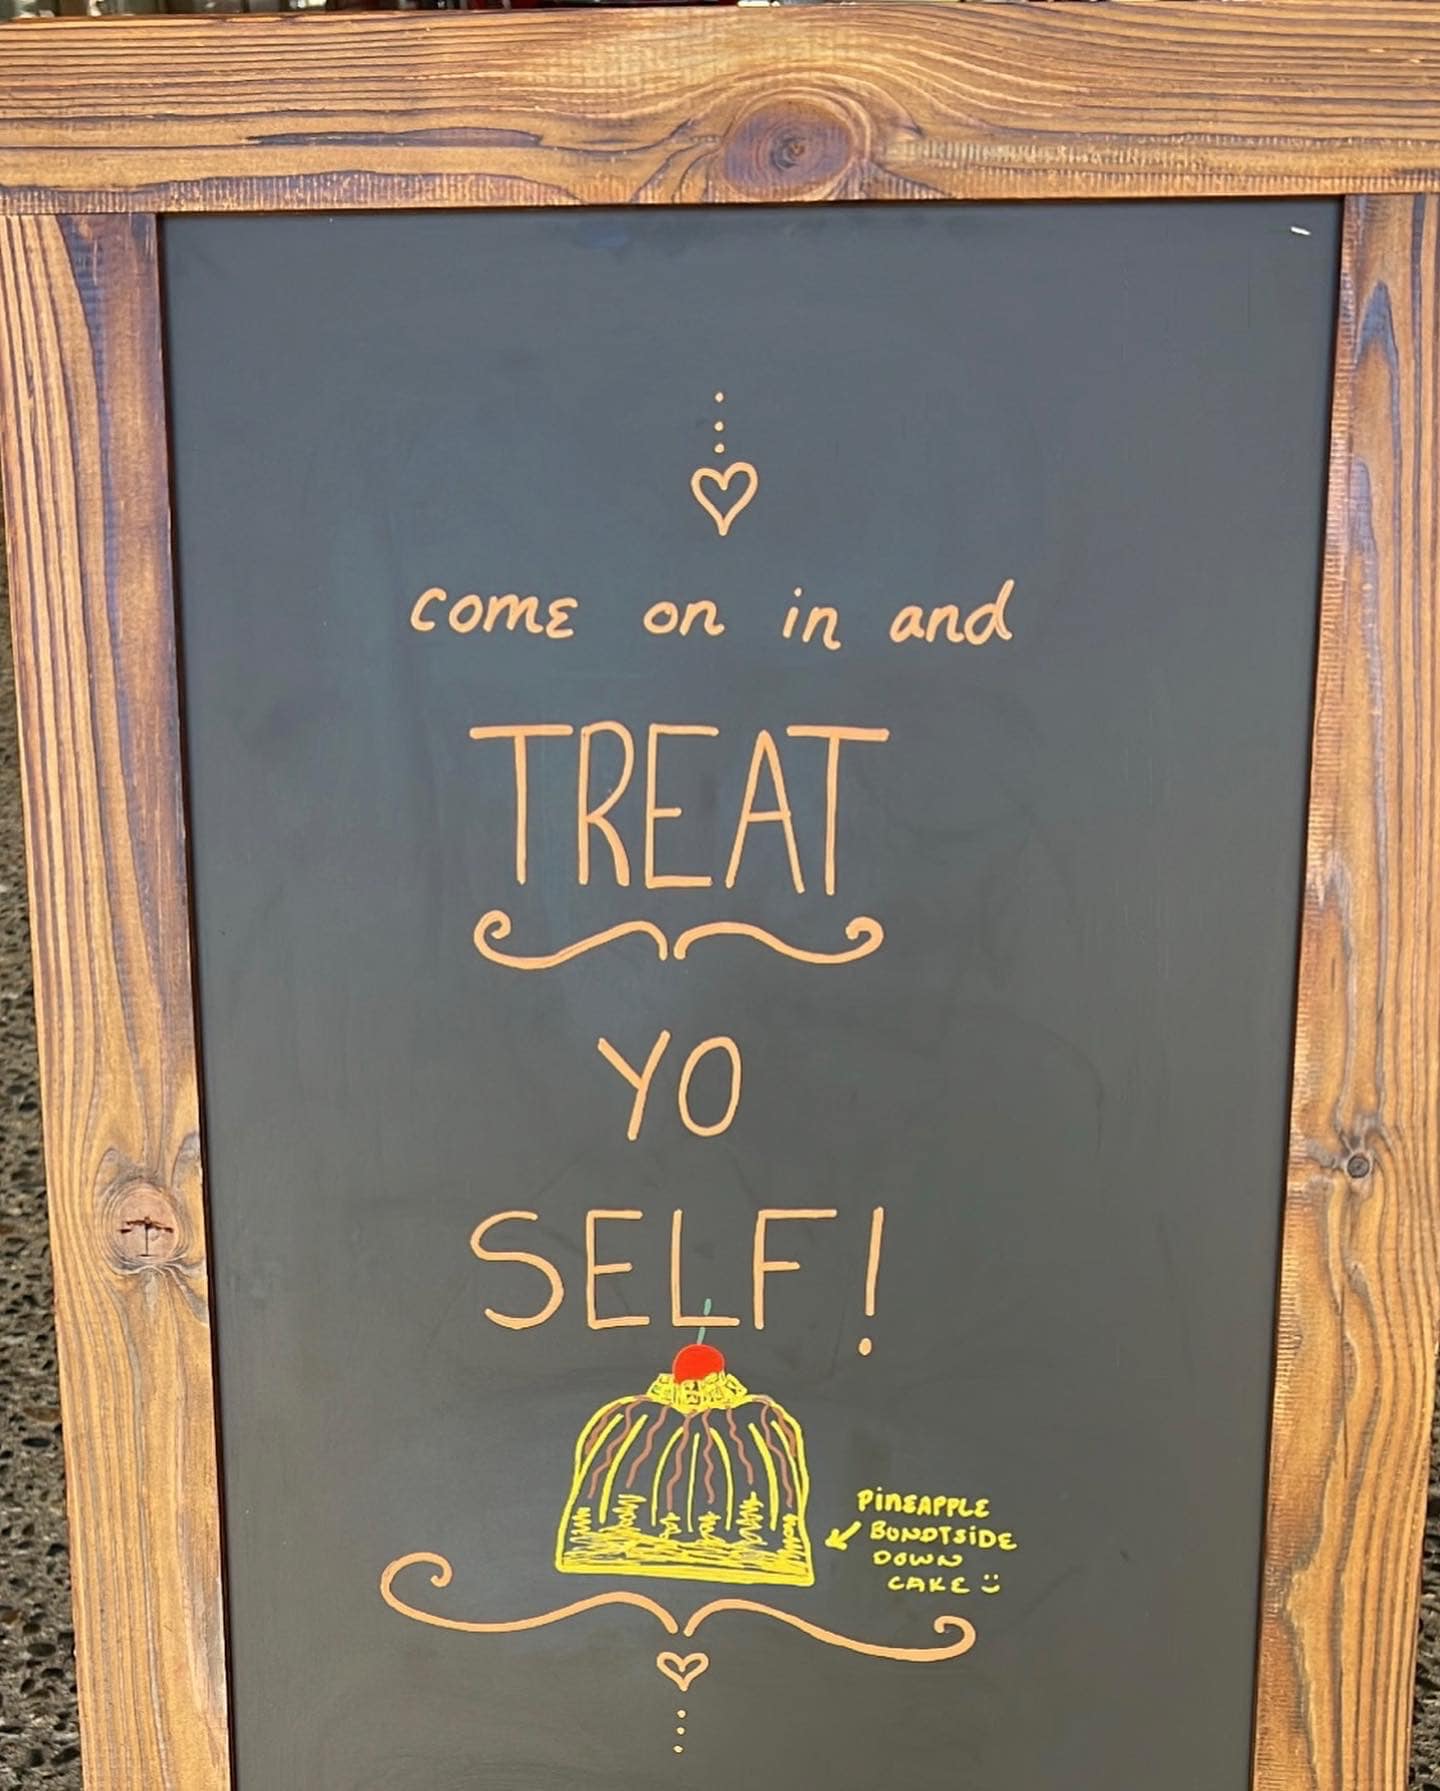 come on in and
TREAT
YO
SELF!
PINEAPPLE
BUNDTSIDE
DOWN
CAKE :)